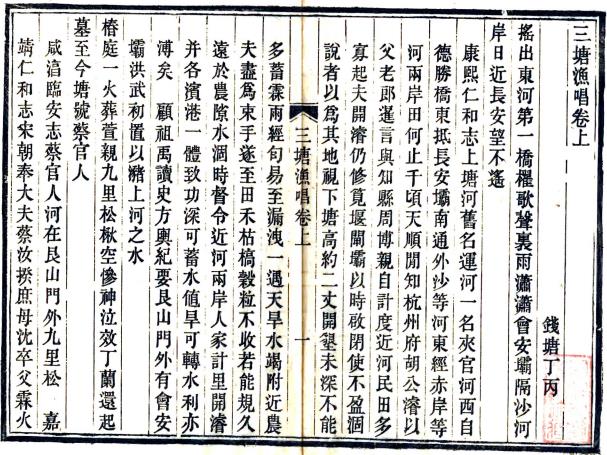 三塘漁唱卷上
錢塘丁丙
搖出東河第一橋櫂歌聲裏雨瀟瀟會安壩隔沙河
岸日近長安望不遙
康熙仁和志上塘河舊名運河一名夾官河西自
德勝橋東抵長安壩南通外沙等河東經赤岸等
河兩岸田何止千頃天順間知杭州府胡公濬以
父老郎蓬言與知縣周博親自計度近河民田多
寡起夫開濬仍修筧堰閘壩以時啟閉使不盈涸
說者以為其地視下塘高約二丈開墾未深不能
三塘漁唱卷上
一
多蓄霖雨經旬易至漏洩一遇天旱水竭附近農
夫盡為束手遂至田禾枯槁穀粒不收若能規久
遠於農隙水涸時督令近河兩岸人家計里開濬
并各濱港一體致功深可蓄水值旱可轉水利亦
溥矣　顧祖禹讀史方輿紀要艮山門外有會安
壩洪武初置以瀦上河之水
椿庭一火葬萱親九里松楸空慘神泣效丁蘭還起
墓至今塘號蔡官人
咸淳臨安志蔡官人河在艮山門外九里松　嘉
靖仁和志宋朝奉大夫蔡汝揆庶母沈卒父霖火